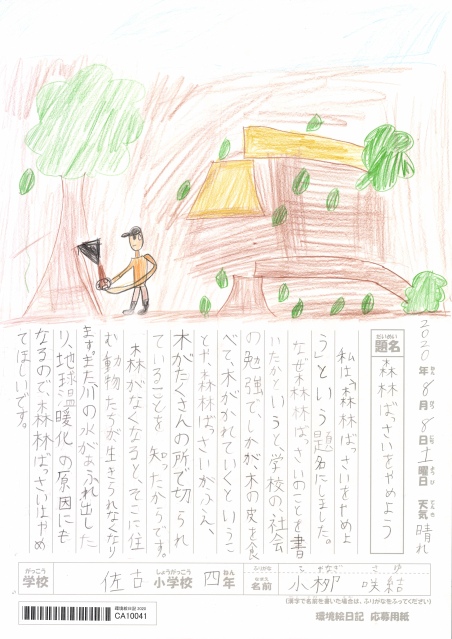 2020年8月8日土曜日 天気 晴れ
だいめい
題名 森林ばっさいをやめよう
私は、「森林ばっさいをやめよ
う」という題名にしました。
なぜ森林ばっさいのことを書
いたかというと学校の社会
の勉強で、しかが、木の皮を食
べて、木がかれていくというこ
とや森林ばっさいがふえ、
木がたくさんの所で切られ
ていることを知ったからです。
森がなくなると、そこに住
む動物たちが生きられなくなり
ます。また川の水があふれ出した
り、地球温暖化の原因にも
なるので、森林ばっさいはやめ
てほしいです。
がっこう しょうがっこう ねん ふりがな さゆ
学校 佐古小学校 四年 なまえ 名前 小栁 咲結
(漢字で名前を書いた場合は、ふりがなをふってください)
環境絵日記 2020
CA10041
環境絵日記 応募用紙